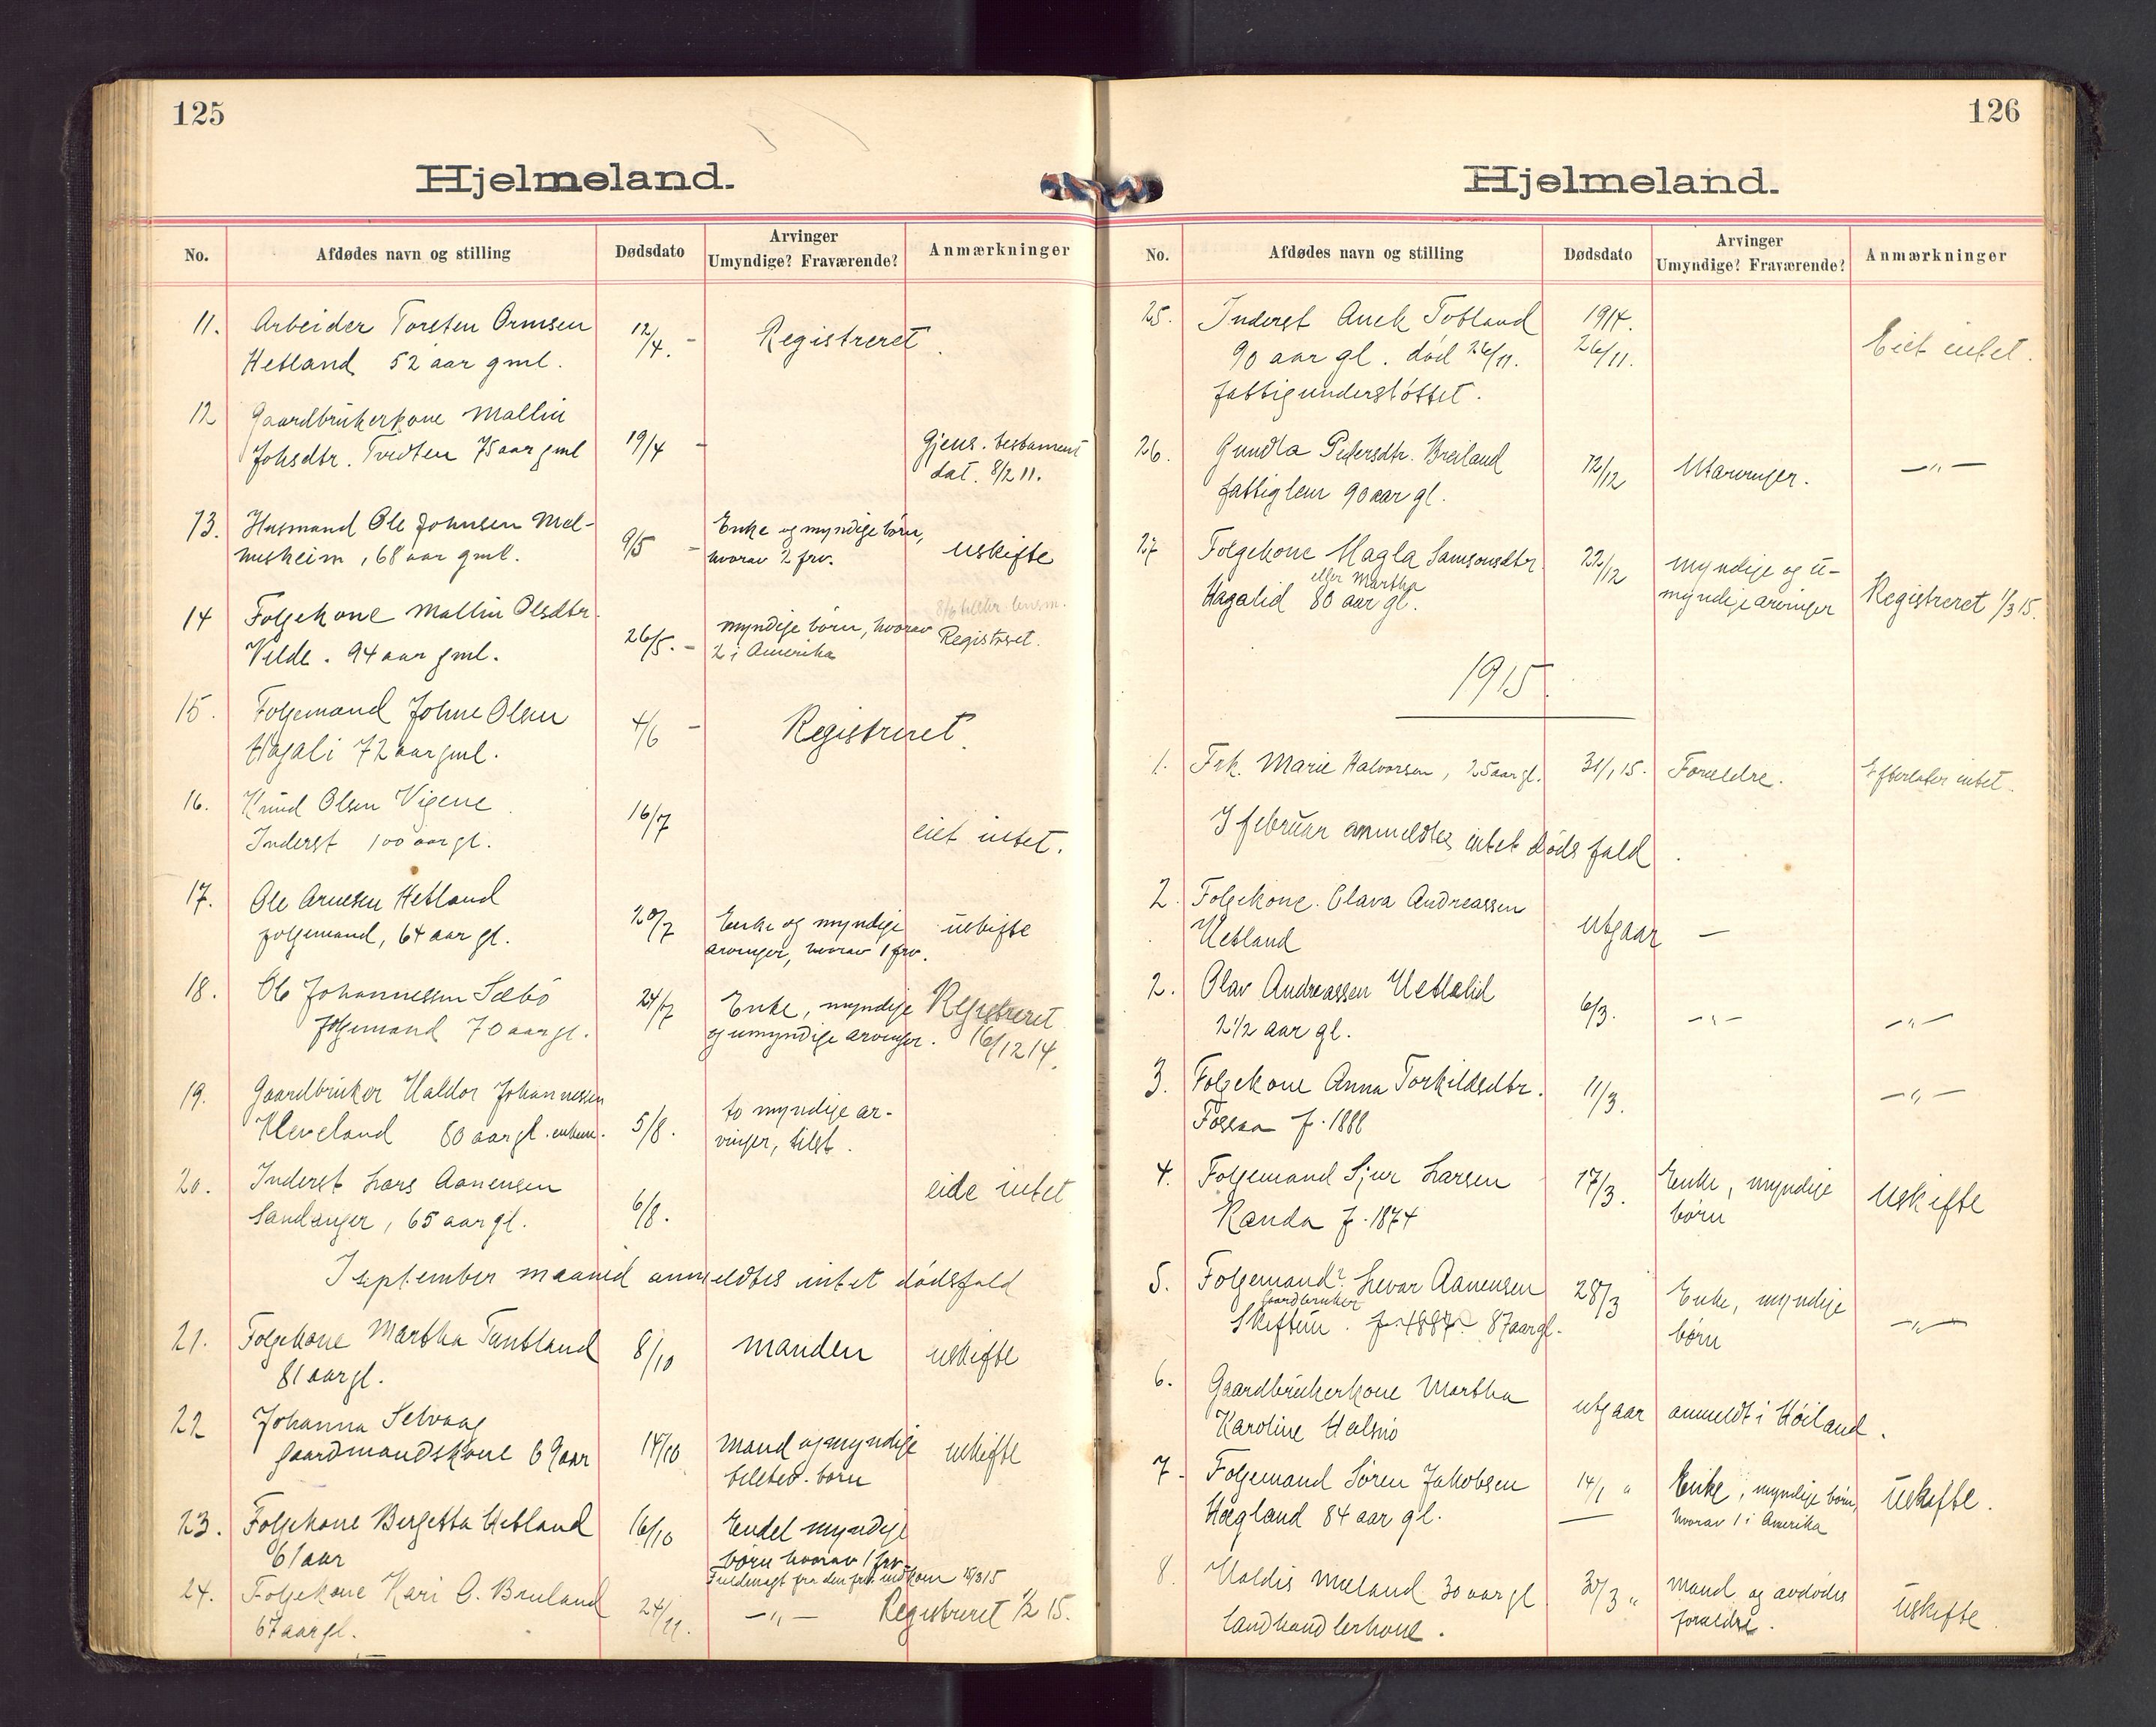 125
Hjelmeland.
No.
Afdødes navn og stilling
Dødsdato
Arvinger
Umyndige? Fraværende?
Anmærkninger
11. Arbeider Torsten Ormsen 12/4. - Registreret.
Hetland 52 aar gml.
12 Gaardbrukerkone Mallin
Johsdtr. Tveten 75 aar gml 19/4 - Gjens. testament
dat. 8/2 11.
13. Husmand Ole Johnsen Mel- 9/5 - Enke og myndige børn, uskifte
husheim, 68 aar gml. hvorav 2 frv.
14 Folgekone Mallin Olsdtr. 26/5. - myndige børn, hvorav Registreret.
Velde. 94 aar gml. 2 i Amerika
15. Folgemand Johne Olsen 4/6 - Registreret.
Hagali 72 aar gml.
16. Knud Olsen Vigene 16/7
Inderst 100 aar gl. eiet intet.
17. Ole Arnesen Hetland 20/7 Enke og myndige uskifte
folgemand, 64 aar gl. arvinger, hvorav 1 frv.
18. Ole Johannessen Sæbø 24/7 Enke, myndige Registreret
folgemand 70 aar gl. og umyndige arvinger. 16/12 14.
19. Gaardbruker Haldor Johannessen 5/8. to myndige ar-
Kleveland 80 aar gl. enkem. vinger, tilst.
20. Inderst Lars Aanensen 6/8. eide intet
Sandanger, 65 aar gl.
I september maaned anmeldtes intet dødsfald
21. Folgekone Martha Tuntland 8/10 manden uskifte
81 aar gl.
22 Johanna Selvaag
gaardmandskone 69 aar 14/10 Mand og myndige uskifte
tilsted. børn
23. Folgekone Bergetta Hetland 16/10 Endel myndige
61 aar børn hvorav 1 frv.
Fuldmagt fra den frv. indkom 15/3 15
24. Folgekone Kari O. Bruland 24/11. —"— Registreret 1/2 15.
67 aar gl.
126
Hjelmeland.
No.
Afdødes navn og stilling
Dødsdato
Arvinger
Umyndige? Fraværende?
Anmærkninger
25. Inderst Anek Totland 1914.
90 aar gl. død 26/11. 26/11. Eiet intet.
fattigunderstøttet.
26. Gundla Pedersdtr. Breiland 12/12 Utarvinger. —"—
fattiglem 90 aar gl.
27 Folgekone Magla Samsonsdtr. 22/12 myndige og u-
eller Martha
Hagalid 80 aar gl. myndige arvinger Registreret 1/3 15.
1915.
1. Frk. Marie Halvorsen, 25 aar gl. 31/1 15. Foreldre. Efterlater intet.
I februar anmeldtes intet dødsfald.
2. Folgekone. Olava Andreassen
Hetland utgaar —
2. Olav Andreassen Hetlelid 6/3. —"— —"—
2 1/2 aar gl.
3. Folgekone Anna Torkildsdtr. 11/3. —"—
Fossaa f. 1888
4. Folgemand Sjur Larsen 17/3. Enke, myndige Uskifte
Randa f. 1874 børn
5. Folgemand? Levar Aanensen 28/3 Enke, myndige —"—
gaardbruker
Skiftun. f. 1887. 87 aar gl. børn
6. Gaardbrukerkone Martha utgaar anmeldt i Høiland.
Karoline Halsnø
7. Folgemand Søren Jakobsen 14/1 " Enke, myndige børn, Uskifte.
Hægland 84 aar gl. hvorav 1 i Amerika
8. Valdis Meland 30 aar gl 30/3 " mand og avdødes Uskifte.
landhandlerkone. foreldre.